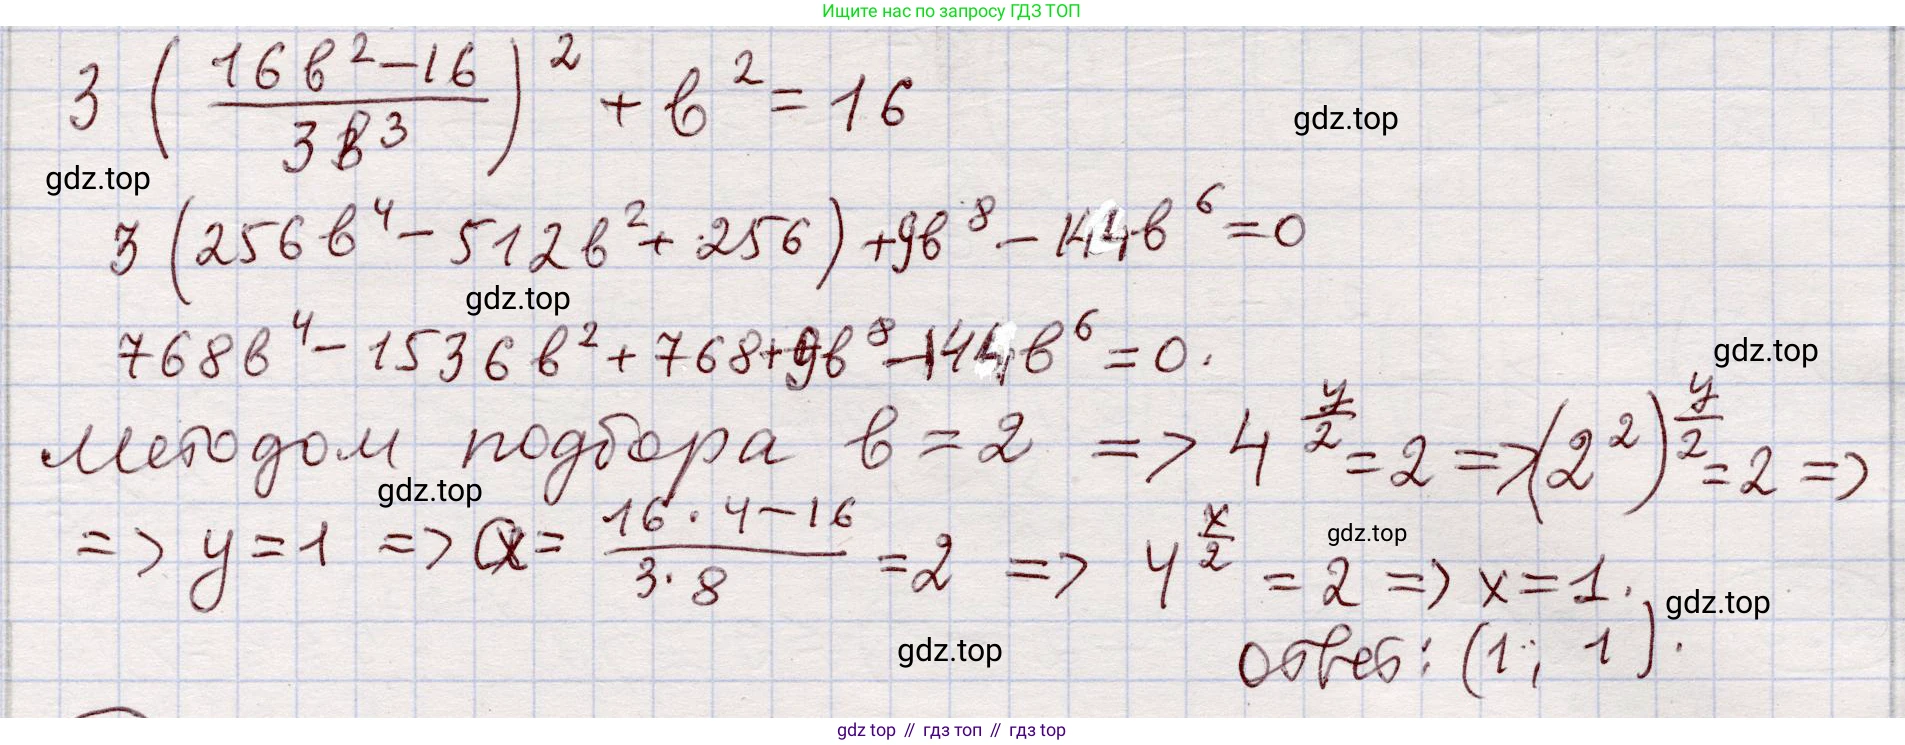 Ищите нас по запросу ГДЗ ТОП
3 ( (16b² − 16) / (3b³) )² + b² = 16
gdz.top
gdz.top
3 (256b⁴ − 512b² + 256) + 9b⁸ − 144b⁶ = 0
gdz.top
768b⁴ − 1536b² + 768 + 9b⁸ − 144b⁶ = 0.
gdz.top
методом подбора b = 2 => 4^(y/2) = 2 => (2²)^(y/2) = 2 =>
gdz.top
=> y = 1 => a = (16 · 4 − 16) / (3 · 8) = 2 => 4^(x/2) = 2 => x = 1.
gdz.top
gdz.top
ответ: (1; 1).
gdz.top
gdz top // гдз топ // гдз top